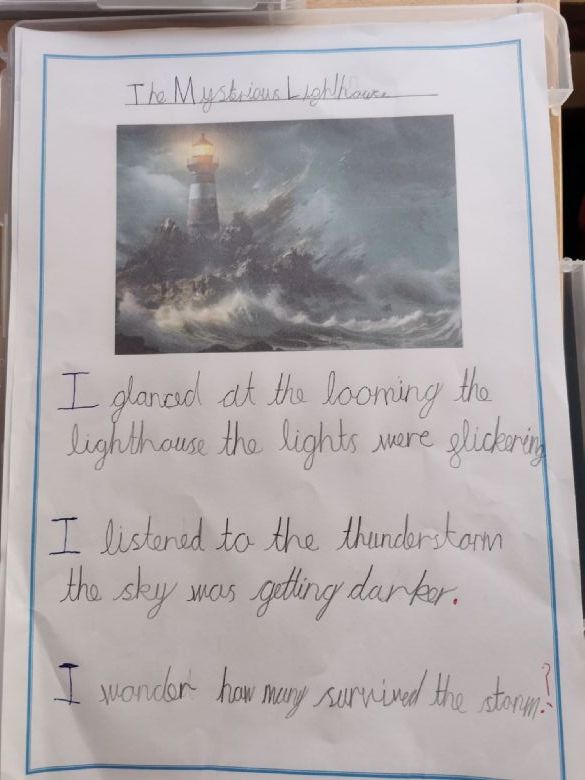 The Mysterious Lighthouse
I glanced at the looming the
lighthouse the lights were flickering
I listened to the thunderstorm
the sky was getting darker.
I wonder how many survived the storm?